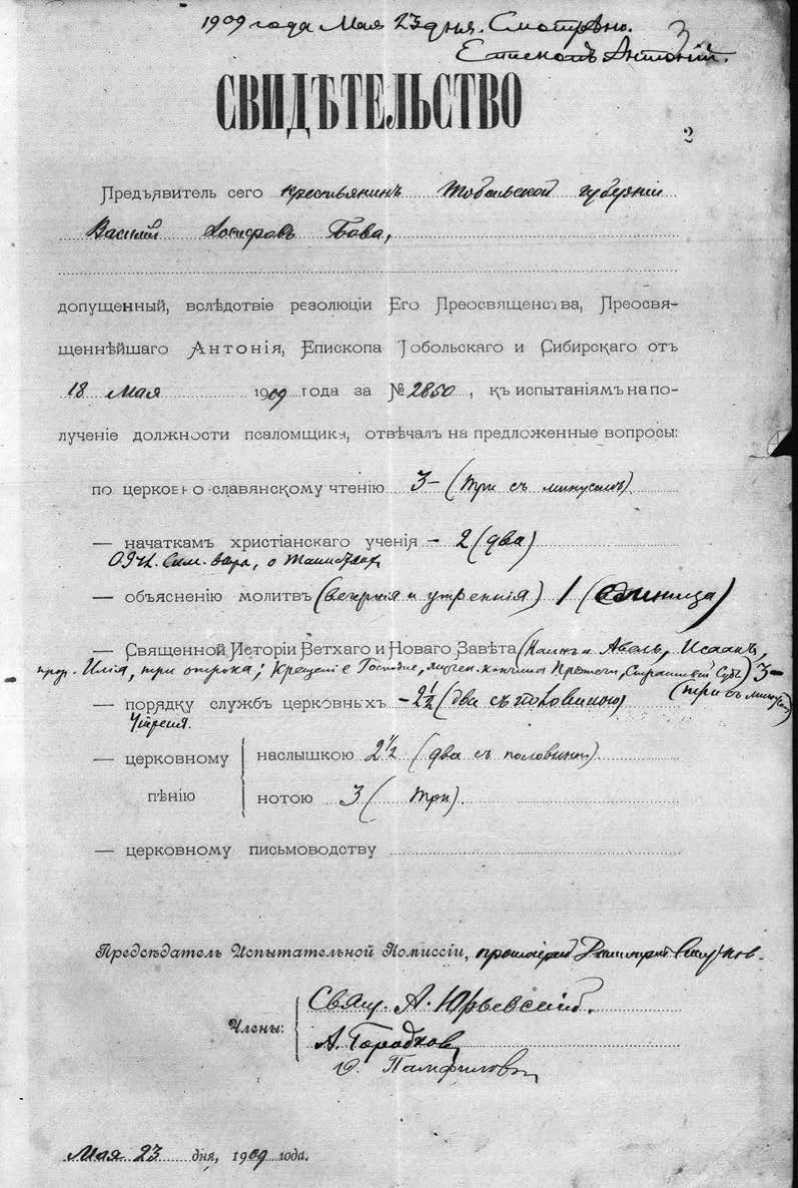 1909 года Мая 23 дня. Смотрѣно.
3
Епископъ Антоній.
СВИДѢТЕЛЬСТВО
2
Предъявитель сего крестьянинъ Тобольской губерніи
Василій Іосифовъ Бова,
допущенный, вслѣдствіе резолюціи Его Преосвященства, Преосвя-
щеннѣйшаго Антонія, Епископа Тобольскаго и Сибирскаго отъ
18 Мая 1909 года за № 2850, къ испытаніямъ на по-
лученіе должности псаломщика, отвѣчалъ на предложенные вопросы:
по церковно-славянскому чтенію 3- (три съ минусомъ)
— начаткамъ христіанскаго ученія - 2 (два)
Сим. вѣры, о Таинствах
— объясненію молитвъ (вечернія и утреннія) 1 (единица)
— Священной Исторіи Ветхаго и Новаго Завѣта (Каинъ и Авель, Исаакъ,
прор. Илія, три отрока; Крещеніе Господне, кончина Предтечи, Страшный Судъ) 3-
(три съ минусом)
— порядку службъ церковныхъ - 2½ (два съ половиною)
Утреня.
— церковному пѣнію наслышкою 2½ (два съ половин)
нотою 3 (три).
— церковному письмоводству
Предсѣдатель Испытательной Комиссіи, протоіерей Димитрій
Члены:
Свящ. А. Юрьевскій.
А. Городков
Памфилов
Мая 23 дня, 1909 года.